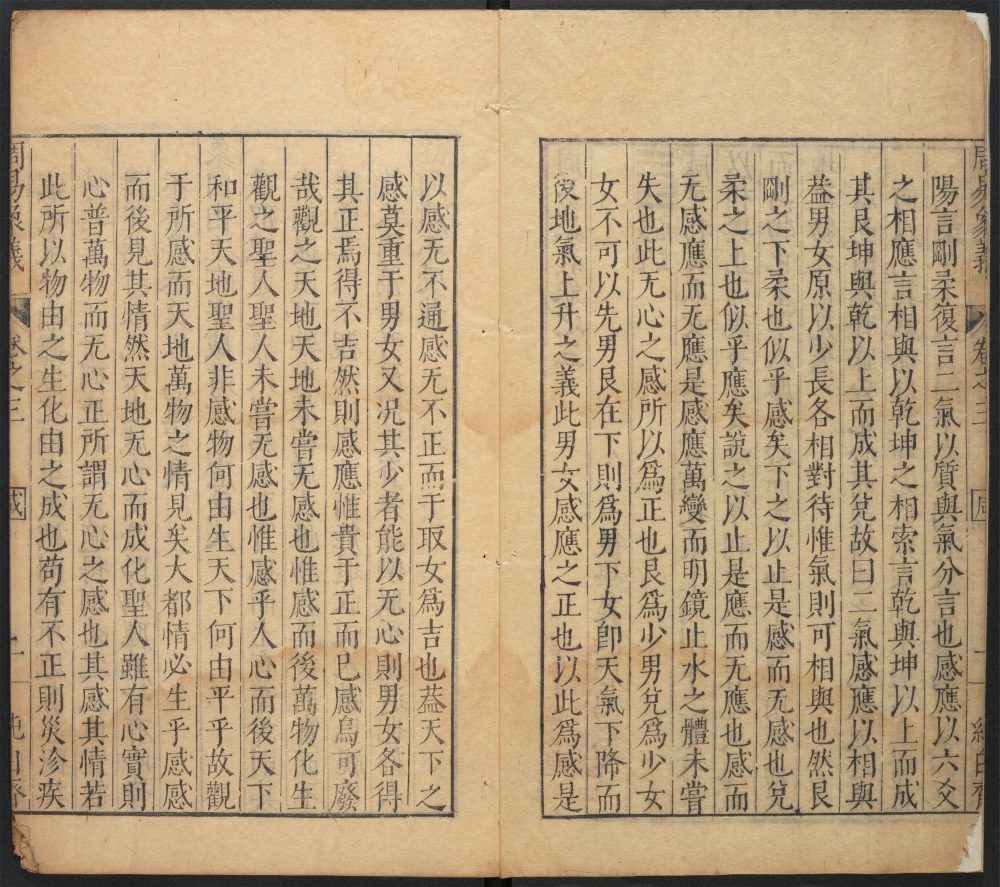 周易象義 卷之三 咸
陽言剛柔復言二氣以質與氣分言也感應以六爻
之相應言相與以乾坤之相索言乾與坤以上而成
其艮坤與乾以上而成其兌故曰二氣感應以相與
葢男女原以少長各相對待惟氣則可相與也然艮
剛之下柔也似乎感矣下之以止是感而无感也兌
柔之上也似乎應矣說之以止是應而无應也感而
无感應而无應是感應萬變而明鏡止水之體未嘗
失也此无心之感所以爲正也艮爲少男兌爲少女
女不可以先男艮在下則爲男下女卽天氣下降而
後地氣上升之義此男女感應之正也以此爲感是
以感无不通感无不正而于取女爲吉也葢天下之
感莫重于男女又況其少者能以无心則男女各得
其正焉得不吉然則感應惟貴于正而已感烏可廢
哉觀之天地天地未嘗无感也惟感而後萬物化生
觀之聖人聖人未嘗无感也惟感乎人心而後天下
和平天地聖人非感物何由生天下何由平乎故觀
于所感而天地萬物之情見矣大都情必生乎感感
而後見其情然天地无心而成化聖人雖有心實則
心普萬物而无心正所謂无心之感也其感其情若
此所以物由之生化由之成也苟有不正則災沴疾
周易象義 卷之三 咸